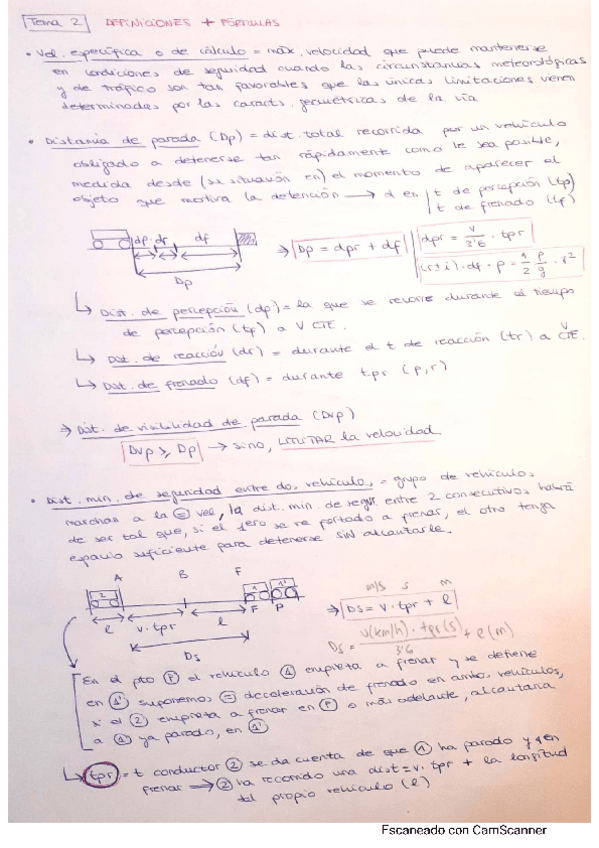 Tema 2 DEFINICIONES + FÓRMULAS
• Vel. específica o de cálculo = máx. velocidad que puede mantenerse
en condiciones de seguridad cuando las circunstancias meteorológicas
y de tráfico son tan favorables que las únicas limitaciones vienen
determinadas por las caracts. geométricas de la vía
• Distancia de parada (Dp) = dist. total recorrida por un vehículo
obligado a detenerse tan rápidamente como le sea posible,
medida desde (su situación en) el momento de aparecer el
objeto que motiva la detención → d en | t de percepción (tp)
| t de frenado (tf)
dp dr df
Dp
⇒ Dp = dpr + df
dpr = v/3'6 · tpr
(r±i) · df · p = 1/2 p/g · v²
↳ Dist. de percepción (dp) = la que se recorre durante el tiempo
de percepción (tp) a V CTE.
↳ Dist. de reacción (dr) = durante el t de reacción (tr) a V CTE.
↳ Dist. de frenado (df) = durante tpr (p,r)
⇒ Dist. de visibilidad de parada (Dvp)
Dvp ≥ Dp → sino, LIMITAR la velocidad
• Dist. min. de seguridad entre dos vehículos = grupo de vehículos
marchan a la = vel, la dist. min. de segur. entre 2 consecutivos habrá
de ser tal que, si el 1ero se ve forzado a frenar, el otro tenga
espacio suficiente para detenerse SIN alcanzarle.
A B F
2 1 1'
F P
l v·tpr l
Ds
m/s s m
⇒ Ds = v · tpr + l
Ds = v(km/h) · tpr(s) / 3'6 + l (m)
En el pto P el vehículo 1 empieza a frenar y se detiene
en 1' suponemos = deceleración de frenado en ambos vehículos,
si el 2 empieza a frenar en P o más adelante, alcanzaría
a 1 ya parado, en 1'
↳ tpr = t conductor 2 se da cuenta de que 1 ha parado y en
frenar → 2 ha recorrido una dist = v · tpr + la longitud
del propio vehículo (l)
Escaneado con CamScanner